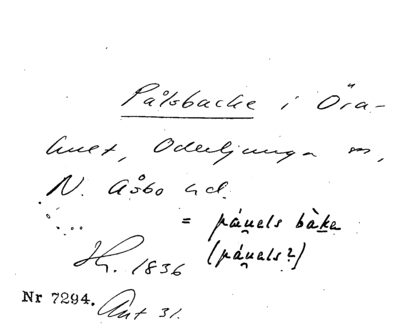 Pålsbacke i Öra-
huet, Oderljunga sn,
N. Åsbo hd.
= páu̯els bàka
(páu̯els?)
Hs. 1836
Nr 7294. Ant 31.